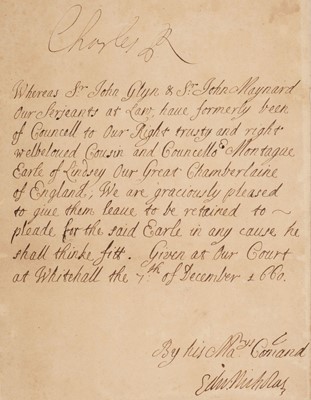 Charles R
Whereas Sr. John Glyn & Sr. John Maynard
Our Serjeants at Law, have formerly been
of Councell to Our Right trusty and right
welbeloved Cousin and Councellor Montague
Earle of Lindsey Our Great Chamberlaine
of England, We are graciously pleased
to give them leave to be retained to ~
pleade for the said Earle in any cause he
shall thinke fitt. Given at Our Court
at Whitehall the 7th of December 1660.
By his Matys Comand
Edw. Nicholas